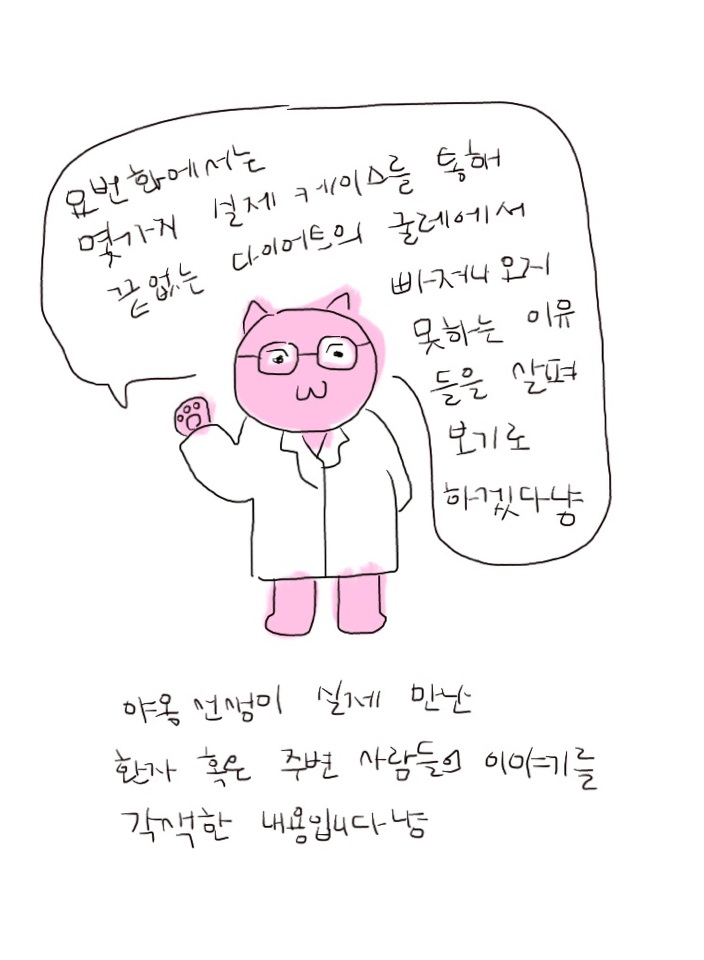 요번화에서는
몇가지 실제 케이스를 통해
끝없는 다이어트의 굴레에서
빠져나오지
못하는 이유
들을 살펴
보기로
하겠다냥
야옹선생이 실제 만난
환자 혹은 주변 사람들의 이야기를
각색한 내용입니다냥